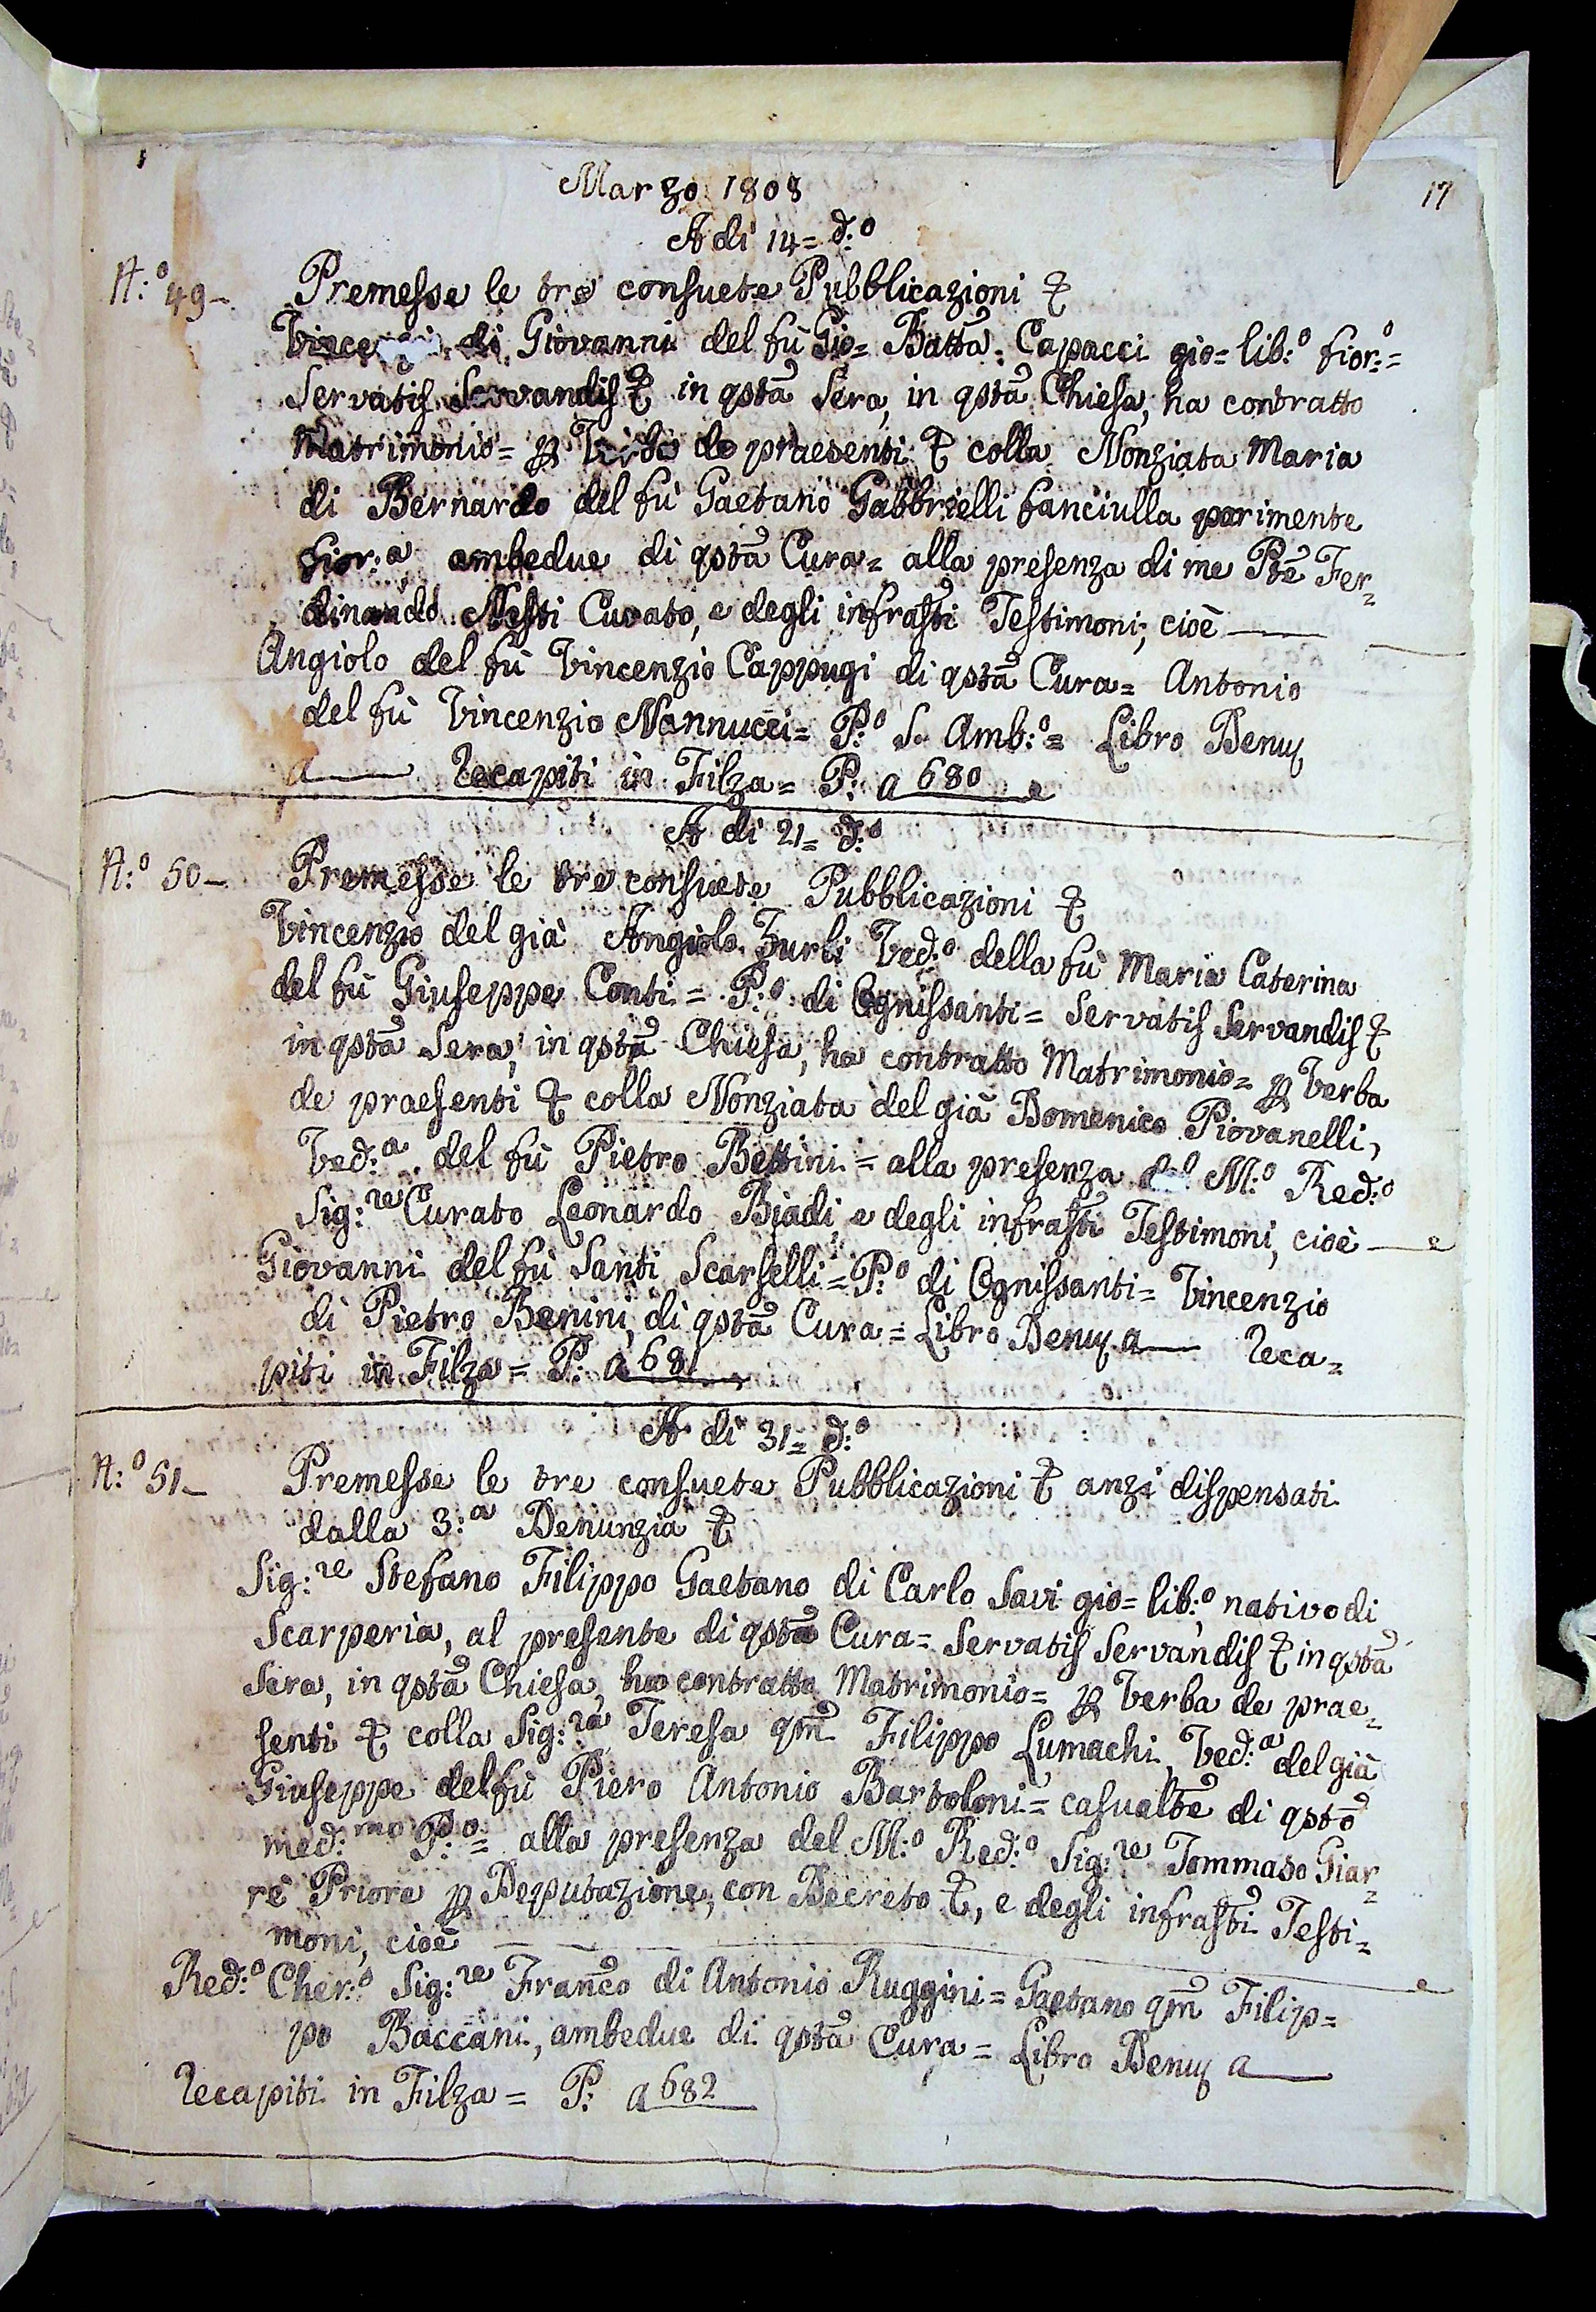 Marzo 1808
17
A di 14= d:o
N:o 49- Premesse le tre consuete Pubblicazioni &
Vince di Giovanni del fù Gio= Batta. Capacci gio= lib:o fior:o=
Servatis Servandis & in qsta Sera, in qsta Chiesa, ha contratto
Matrimonio= p Verba de praesenti & colla Nonziata Maria
di Bernardo del fù Gaetano Gabbrielli fanciulla parimente
fior:a ambedue di qsta Cura= alla presenza di me Pte Fer=
dinando Nesti Curato, e degli infrasti Testimoni, cioè
Angiolo del fù Vincenzio Cappugi di qsta Cura= Antonio
del fù Vincenzio Nannucci= P:o S. Amb:o= Libro Denuz
a Recapiti in Filza= P: a 680
A di 21= d:o
N:o 50- Premesse le tre consuete Pubblicazioni &
Vincenzio del già Angiolo Zurli Ved:o della fù Maria Caterina
del fù Giuseppe Conti= P:o di Ognissanti= Servatis Servandis &
in qsta Sera, in qsta Chiesa, ha contratto Matrimonio= p Verba
de praesenti & colla Nonziata del già Domenico Piovanelli,
Ved:a del fù Pietro Bettini= alla presenza del M:o Red:o
Sig:re Curato Leonardo Biadi, e degli infrasti Testimoni, cioè
Giovanni del fù Santi Scarselli= P:o di Ognissanti= Vincenzio
di Pietro Benini, di qsta Cura= Libro Denuz. a Reca=
piti in Filza= P: a 681
A di 31= d:o
N:o 51- Premesse le tre consuete Pubblicazioni & anzi dispensati
dalla 3:a Denunzia &
Sig:re Stefano Filippo Gaetano di Carlo Savi gio= lib:o nativo di
Scarperia, al presente di qsta Cura= Servatis Servandis & in qsta
Sera, in qsta Chiesa, ha contratto Matrimonio= p Verba de prae=
senti & colla Sig:ra Teresa qm Filippo Lumachi, Ved:a del già
Giuseppe del fù Piero Antonio Bartoloni= casualte di qsto
med:mo P:o= alla presenza del M:o Red:o Sig:re Tommaso Giar=
rè Priore p Deputazione, con Decreto &, e degli infrasti Testi=
moni, cioè
Red:o Cher:o Sig:re Franco di Antonio Ruggini= Gaetano qm Filip=
po Baccani, ambedue di qsta Cura= Libro Denuz a
Recapiti in Filza= P: a 682